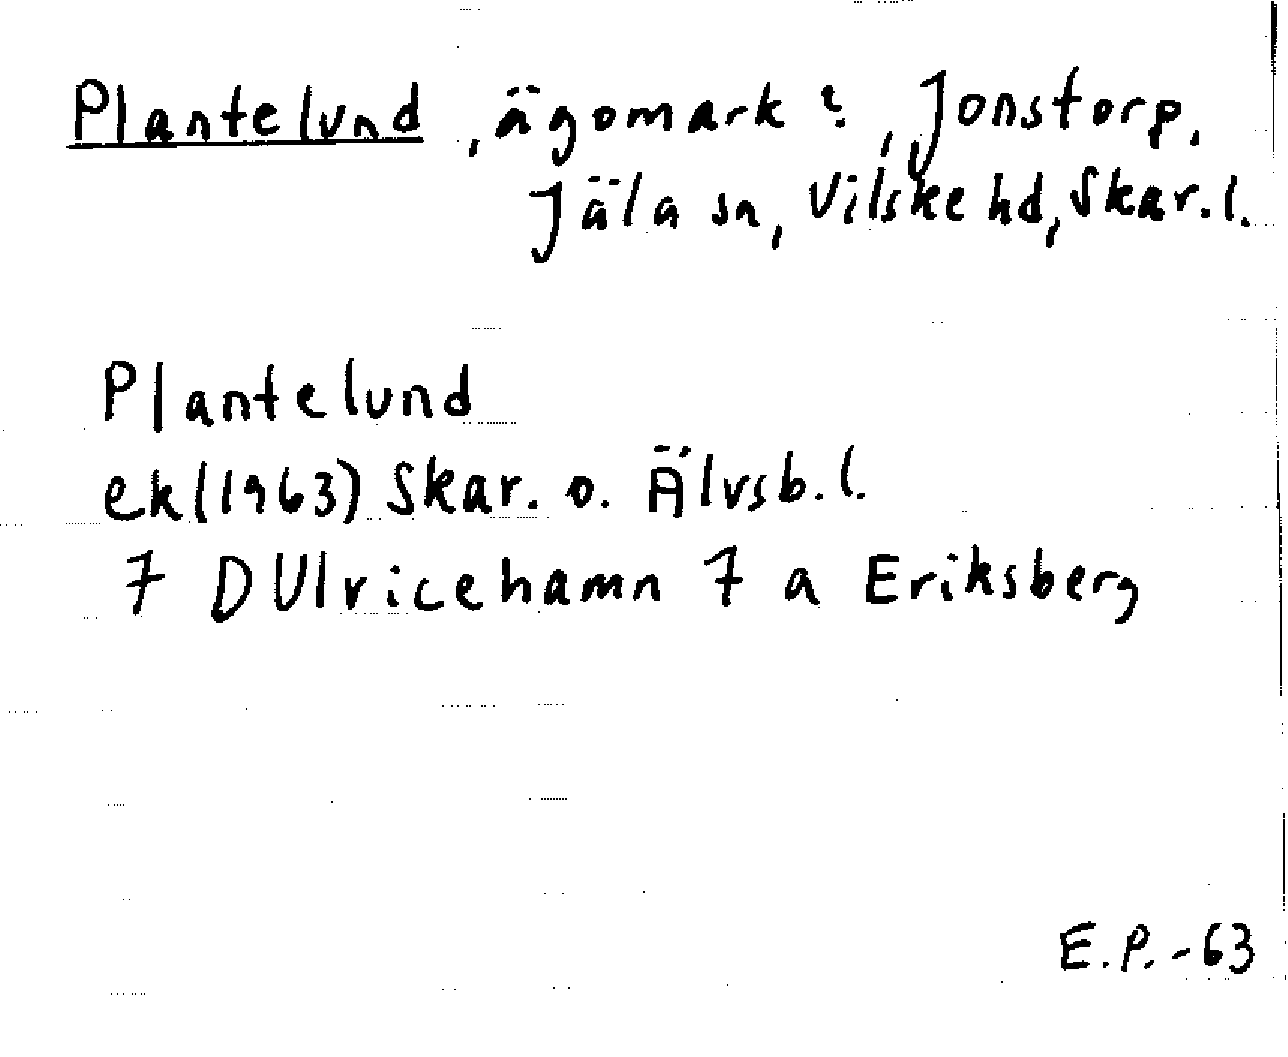 Plantelund, ägomark?, Jonstorp,
Jäla sn, Vilske hd, Skar.l.
Plantelund
ek(1963) Skar. o. Älvsb.l.
7 D Ulricehamn 7 a Eriksberg
E.P.-63